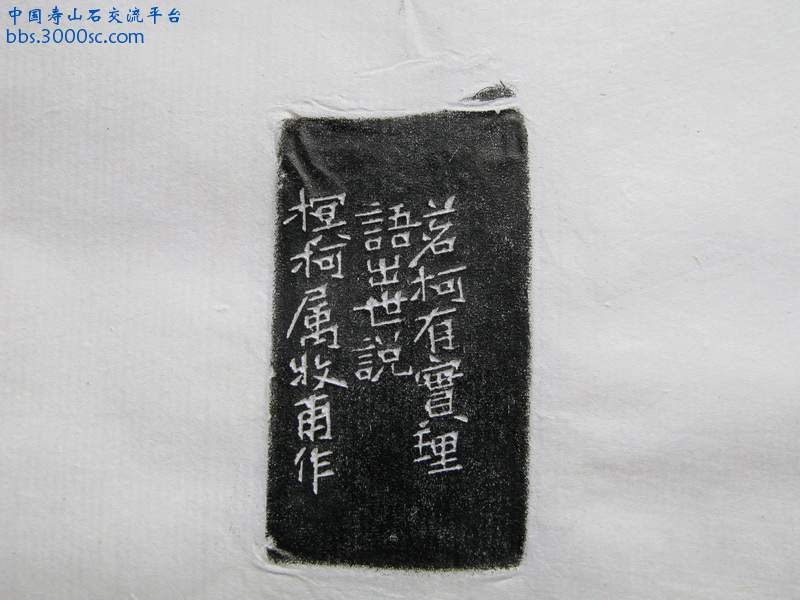 中国寿山石交流平台
bbs.3000sc.com
茗柯有實理
語出世説
柯属牧甫作